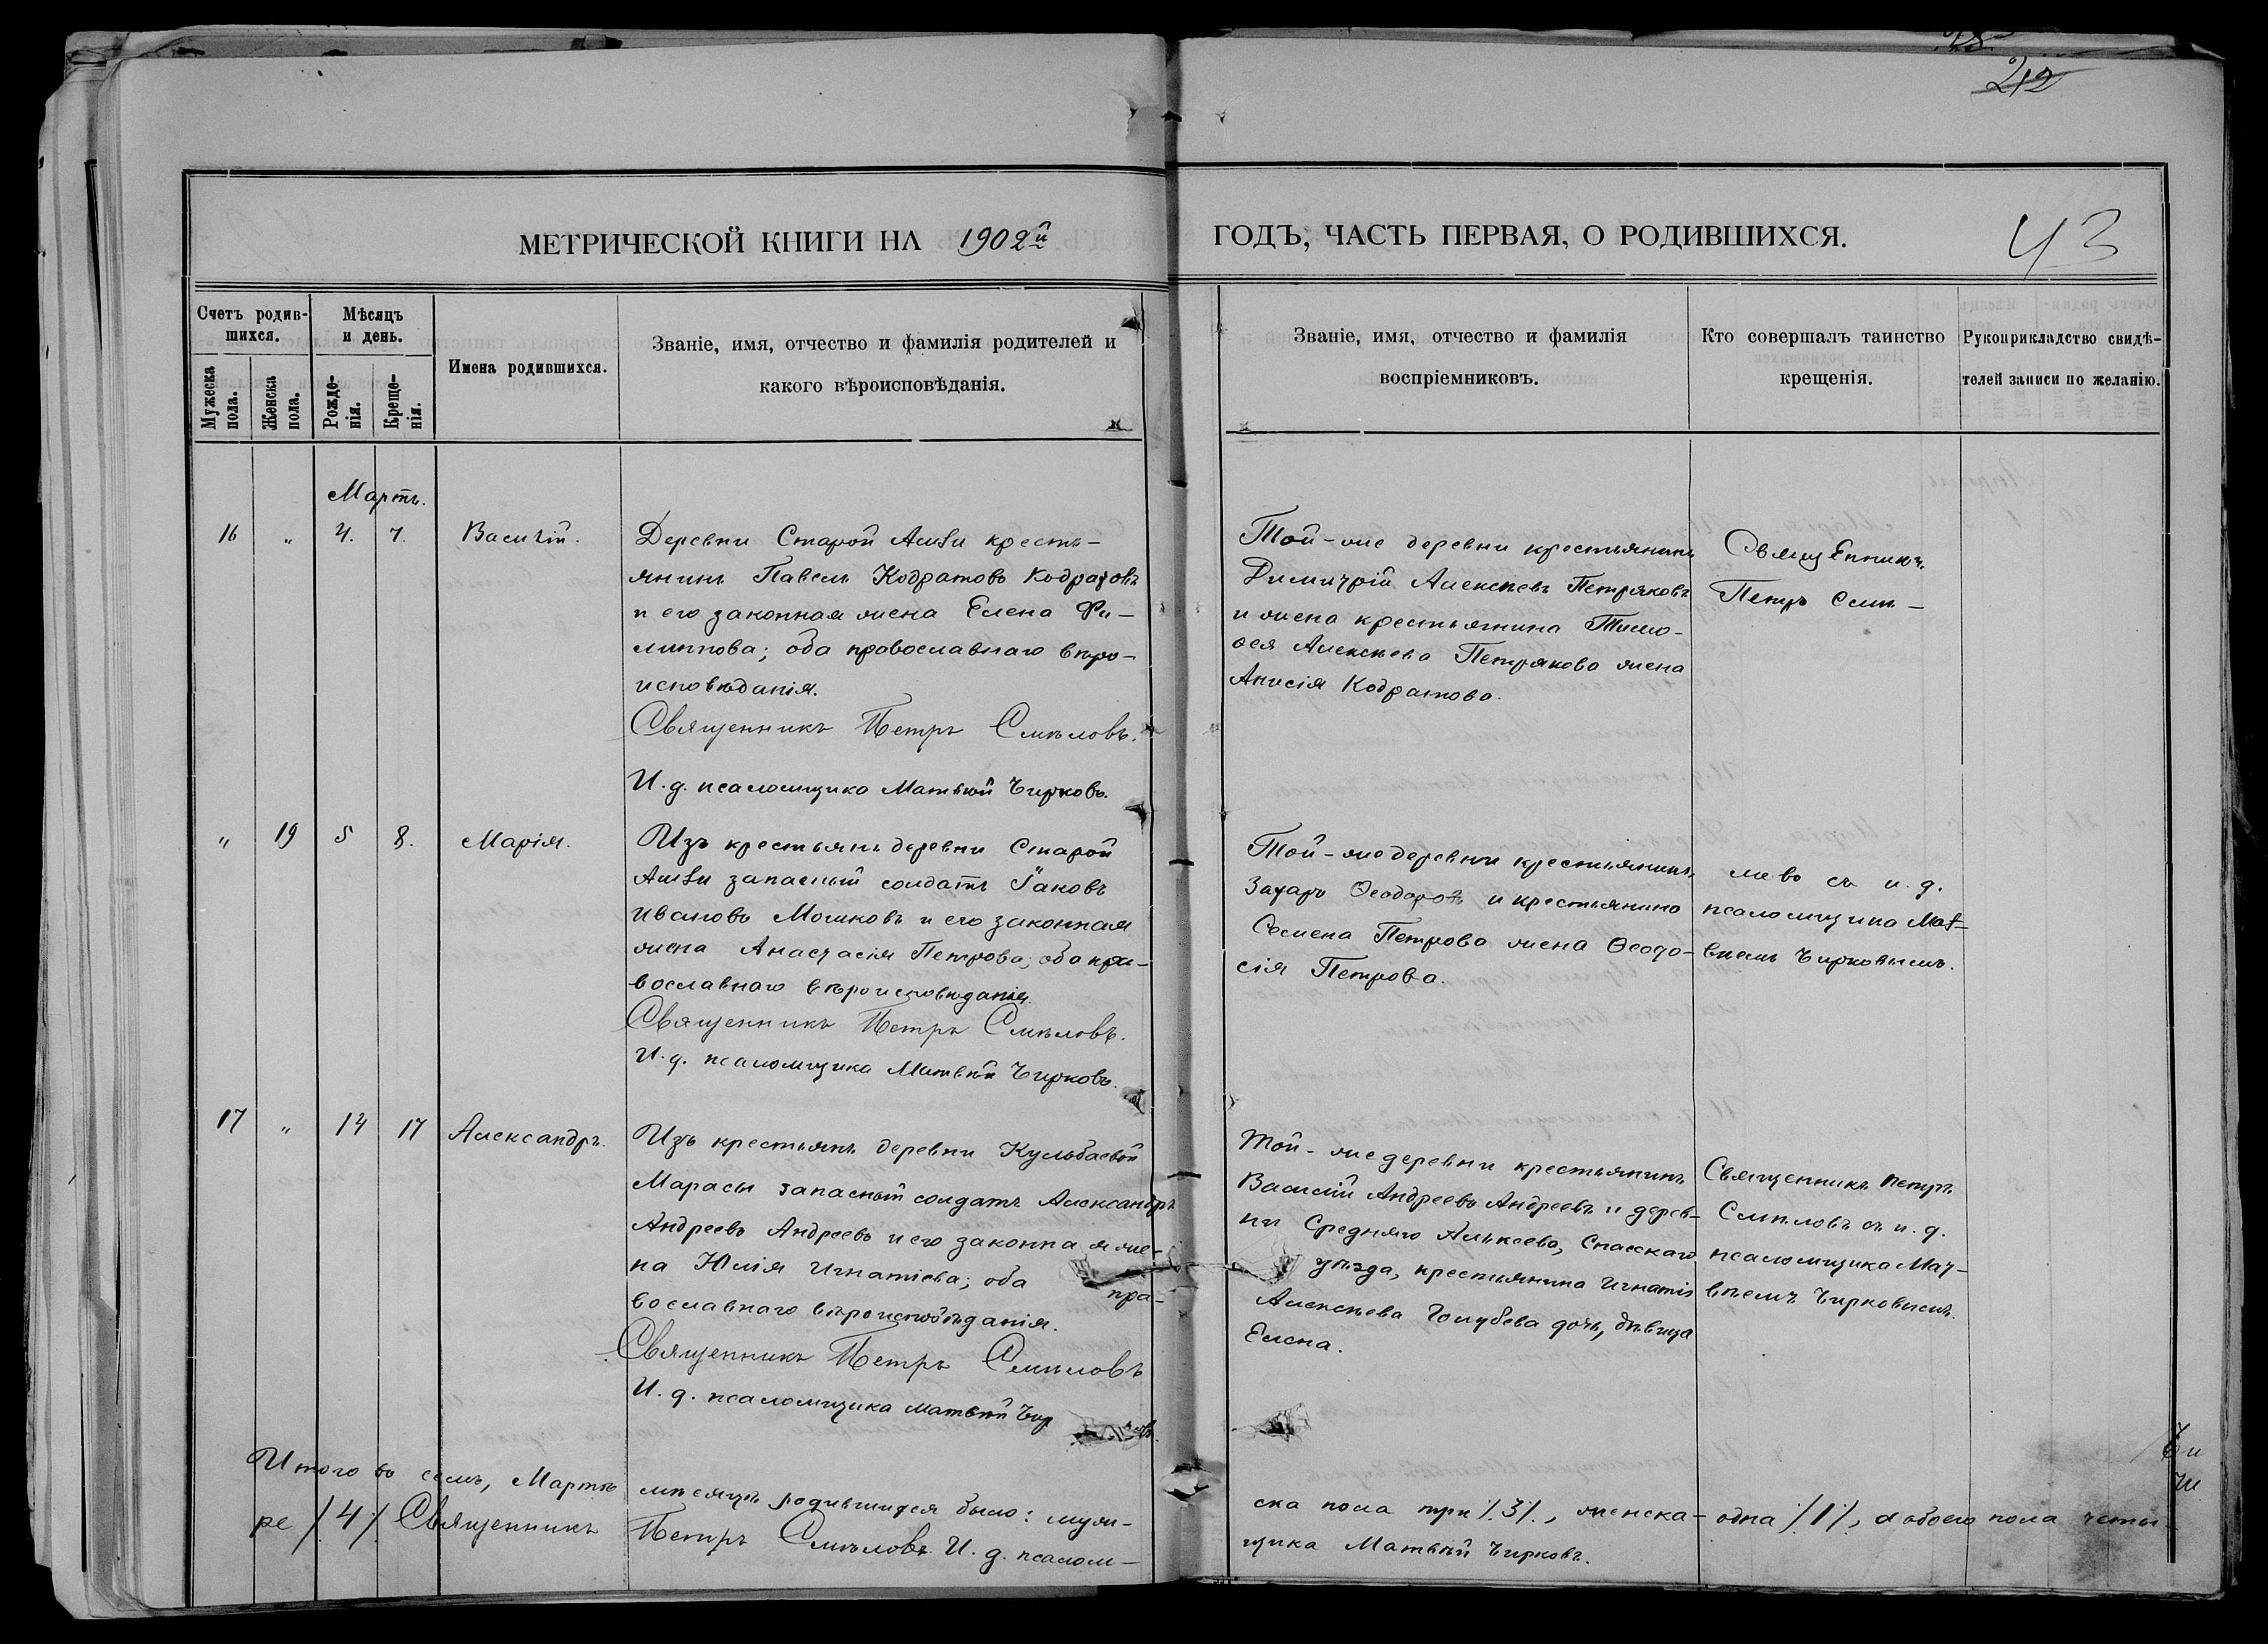 212
МЕТРИЧЕСКОЙ КНИГИ НА 1902й ГОДЪ, ЧАСТЬ ПЕРВАЯ, О РОДИВШИХСЯ.
43
Счетъ родив-
шихся.
Мужеска
пола.
Женска
пола.
Мѣсяцъ
и день.
Рожде-
нія.
Креще-
нія.
Имена родившихся.
Званіе, имя, отчество и фамилія родителей и
какого вѣроисповѣданія.
Званіе, имя, отчество и фамилія
воспріемниковъ.
Кто совершалъ таинство
крещенія.
Рукоприкладство свидѣ-
телей записи по желанію.
Мартъ.
16 " 4. 7. Василій.
Деревни Старой Амзи кресть-
янинъ Павелъ Кодратовъ Кодратовъ
и его законная жена Елена Фи-
липпова; оба православнаго вѣро-
исповѣданія.
Священникъ Петръ Смѣловъ.
И. д. псаломщика Матвѣй Чирковъ.
Той-же деревни крестьянинъ
Димитрій Алексѣевъ Петряковъ
и жена крестьянина Тимо-
ѳея Алексѣева Петрякова жена
Анисія Кодратова.
Священникъ
Петръ Смѣ-
" 19 5 8. Марія.
Изъ крестьянъ деревни Старой
Амзи запасный солдатъ Іаковъ
Ивановъ Мошковъ и его законная
жена Анастасія Петрова; оба пра-
вославнаго вѣроисповѣданія.
Священникъ Петръ Смѣловъ.
И. д. псаломщика Матвѣй Чирковъ.
Той-же деревни крестьянинъ
Захаръ Ѳеодоровъ и крестьянина
Семена Петрова жена Ѳеодо-
сія Петрова.
ловъ съ и. д.
псаломщика Мат-
вѣемъ Чирковымъ.
17 " 14 17 Александръ.
Изъ крестьянъ деревни Кульбаевой
Марасы запасный солдатъ Александръ
Андреевъ Андреевъ и его законная же-
на Юлія Игнатіева; оба пра-
вославнаго вѣроисповѣданія.
Священникъ Петръ Смѣловъ
И. д. псаломщика Матвѣй Чирковъ.
Той-же деревни крестьянинъ
Василій Андреевъ Андреевъ и дерев-
ни Средняго Алькеева, Спасскаго
уѣзда, крестьянина Игнатія
Алексѣева Голубева дочь, дѣвица
Елена.
Священникъ Петръ
Смѣловъ съ и. д.
псаломщика Мат-
вѣемъ Чирковымъ.
Итого въ семъ, Мартѣ мѣсяцѣ родившихся было: муже-ска пола три /.3/., женска- одна /.1/., а обоего пола четы-
ре /.4/. Священникъ Петръ Смѣловъ. И. д. псалом-щика Матвѣй Чирковъ.